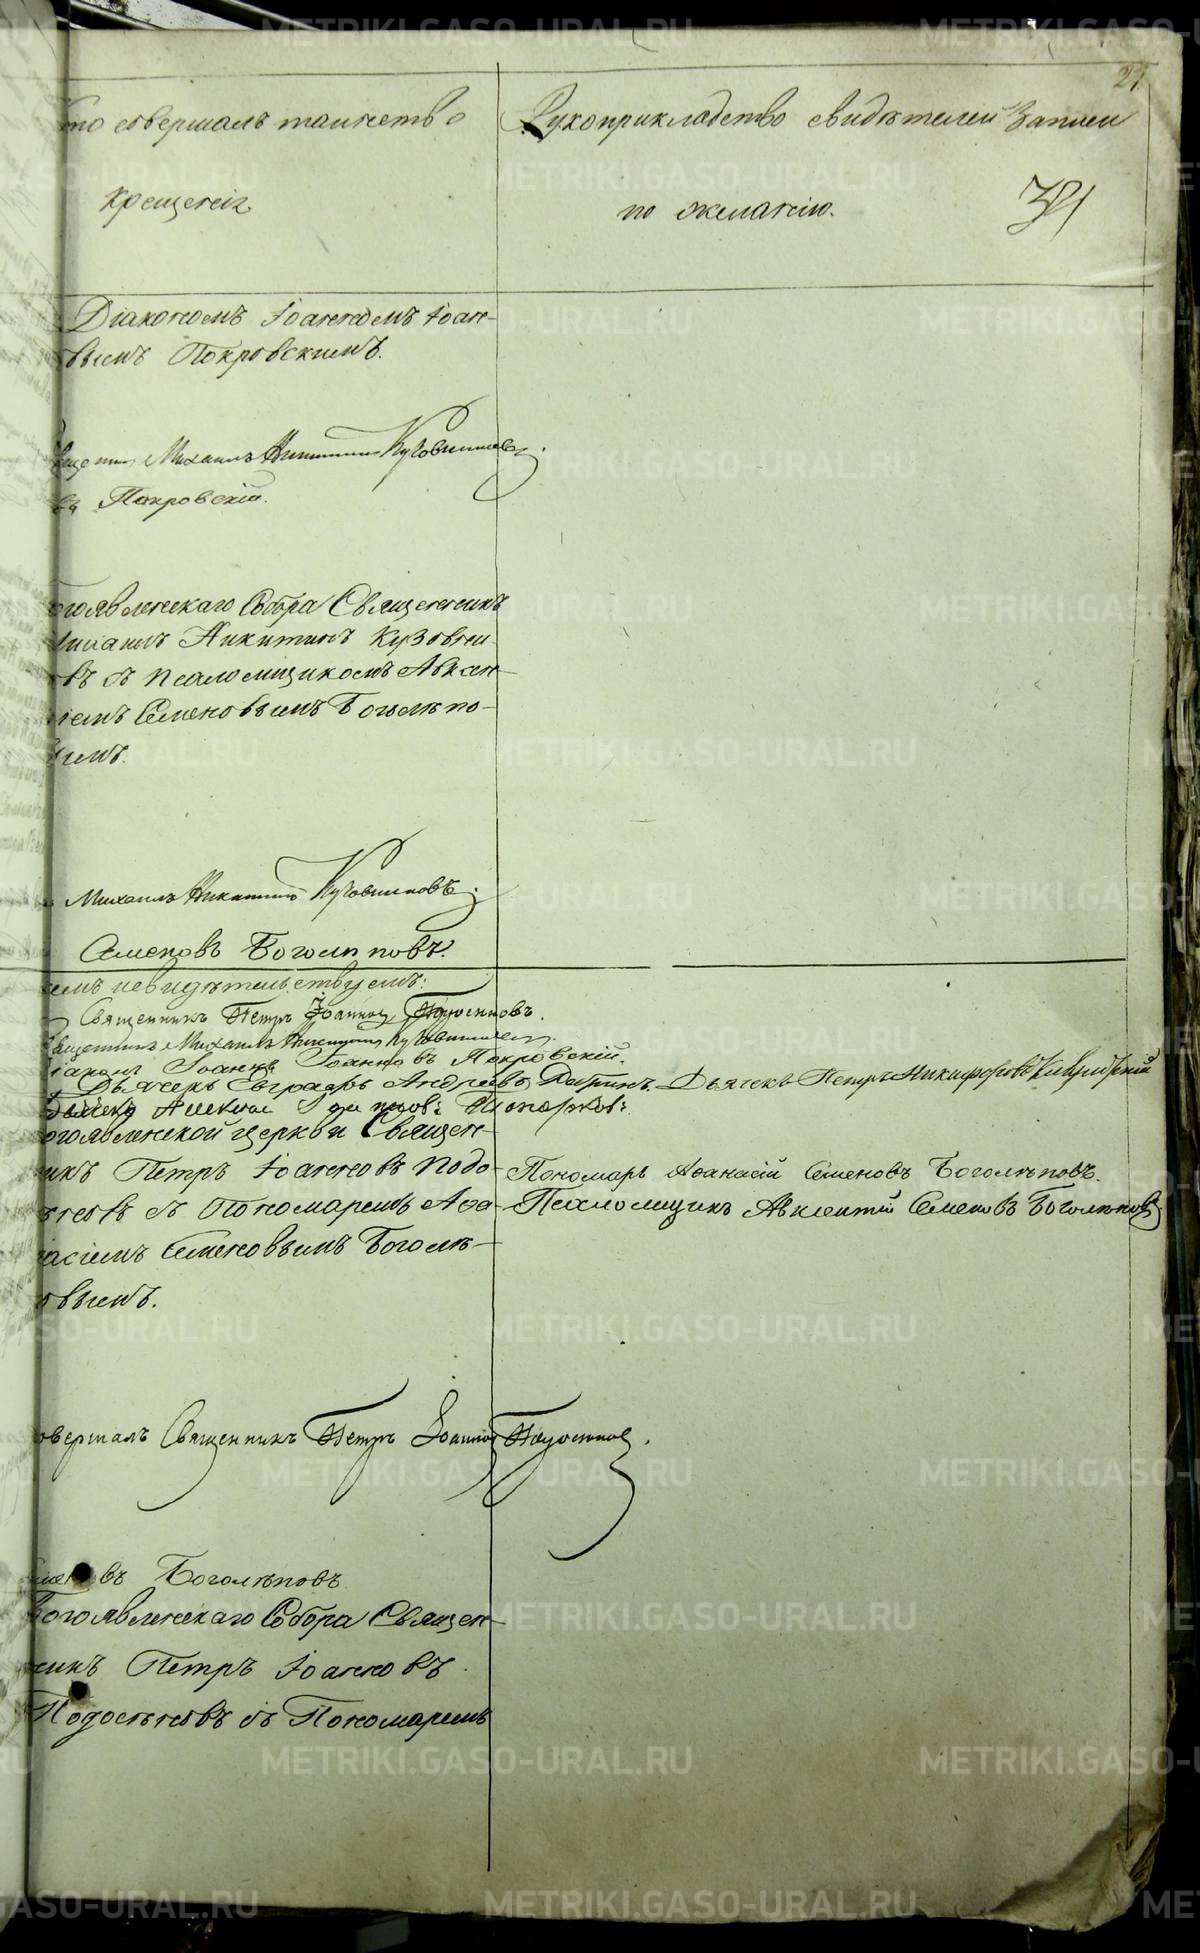 27
то совершалъ таинство
Рукоприкладство свидѣтелей записи
Крещенія
по желанію.
Діакономъ Іоанномъ Іоан-
вымъ Покровскимъ.
Михаилъ Никитинъ Кузовниковъ.
въ Покровскій.
огоявленскаго Собора Священникъ
ихаилъ Никитинъ Кузовни-
въ съ псаломщикомъ Авксен-
іемъ Семеновымъ Боголѣпо-
ымъ.
Михаилъ Никитинъ Кузовниковъ.
Семеновъ Боголѣповъ.
емъ свидѣтельствуемъ:
Священникъ Петръ Іоанновъ Подосеновъ.
Священникъ Михаилъ Никитинъ Кузовниковъ.
іаконъ Іоаннъ Іоанновъ Покровскій.
Дьячекъ Евграфъ Андреевъ Дьячекъ Петръ Никифоровъ
огоявленской церкви Священ-
икъ Петръ Іоанновъ Подо-
еновъ съ Пономаремъ Афа-
асіемъ Семеновымъ Боголѣ-
овымъ.
Пономарь Афанасій Семеновъ Боголѣповъ.
Псаломщикъ Авксентій Семеновъ Боголѣповъ
овершалъ Священникъ Петръ Іоанновъ Подосеновъ.
еменовъ Боголѣповъ
Богоявленскаго Собора Священ-
никъ Петръ Іоанновъ
Подосеновъ съ Пономаремъ
METRIKI.GASO-URAL.RU